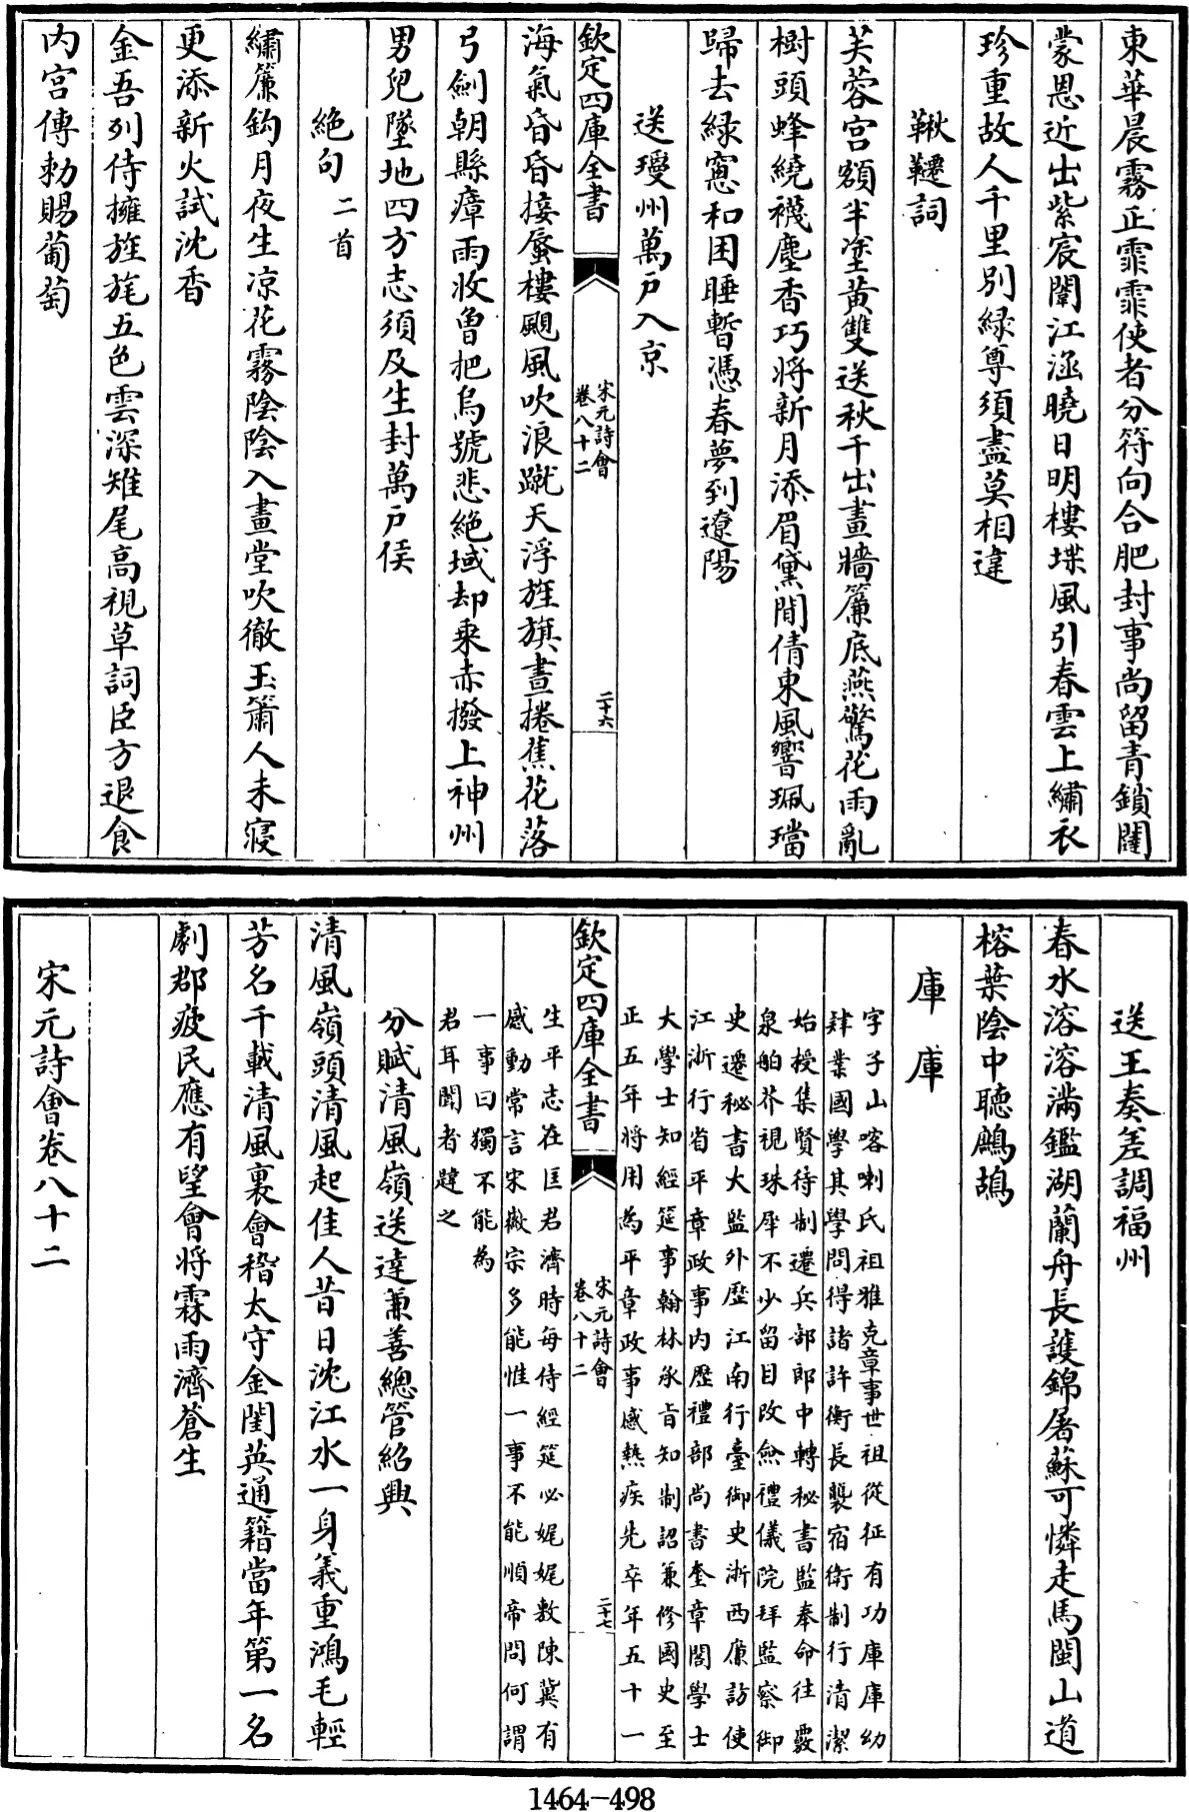 東華晨霧正霏霏使者分符向合肥封事尚留青鎖闥
蒙恩近出紫宸闈江涵曉日明樓堞風引春雲上繡衣
珍重故人千里別綠尊須盡莫相違
鞦韆詞
芙蓉宮額半塗黃雙送秋千出畫牆簾底燕驚花雨亂
樹頭蜂繞襪塵香巧將新月添眉黛閒倩東風響珮璫
歸去綠窻和困睡暫憑春夢到遼陽
送瓊州萬戶入京
欽定四庫全書
宋元詩會
卷八十二
二十六
海氣昏昏接蜃樓颶風吹浪蹴天浮旌旗晝捲蕉花落
弓劍朝縣瘴雨收曾把烏號悲絕域却乘赤撥上神州
男兒墜地四方志須及生封萬戶侯
絕句二首
繡簾鈎月夜生凉花霧陰陰入畫堂吹徹玉簫人未寢
更添新火試沈香
金吾列侍擁旌旄五色雲深雉尾高視草詞臣方退食
內宮傳勅賜葡萄
送王奏差調福州
春水溶溶滿鑑湖蘭舟長護錦屠蘇可憐走馬閩山道
榕葉陰中聽鷓鴣
庫庫
字子山喀喇氏祖雅克章事世祖從征有功庫庫幼
肄業國學其學問得諸許衡長襲宿衛制行清潔
始授集賢待制遷兵部郎中轉秘書監奉命往覈
泉舶芥視珠犀不少留目改僉禮儀院拜監察御
史遷秘書大監外歷江南行臺御史浙西廉訪使
江浙行省平章政事內歷禮部尚書奎章閣學士
大學士知經筵事翰林承旨知制詔兼修國史至
正五年將用為平章政事感熱疾先卒年五十一
欽定四庫全書
宋元詩會
卷八十二
二十七
生平志在匡君濟時每侍經筵必娓娓敷陳冀有
感動常言宋徽宗多能惟一事不能順帝問何謂
一事曰獨不能為
君耳聞者韙之
分賦清風嶺送達兼善總管紹興
清風嶺頭清風起佳人昔日沈江水一身義重鴻毛輕
芳名千載清風裏會稽太守金閨英通籍當年第一名
劇郡疲民應有望會將霖雨濟蒼生
宋元詩會卷八十二
1464-498